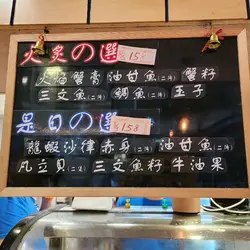 火炙の選
$15-
火炙蟹膏油甘魚(二件) 蟹籽
三文魚(二件) 鯛魚(二件) 玉子
是日の選
$158
龍蝦沙律赤身(二件) 油甘魚(二件)
凡立貝(二件) 三文魚籽 牛油果